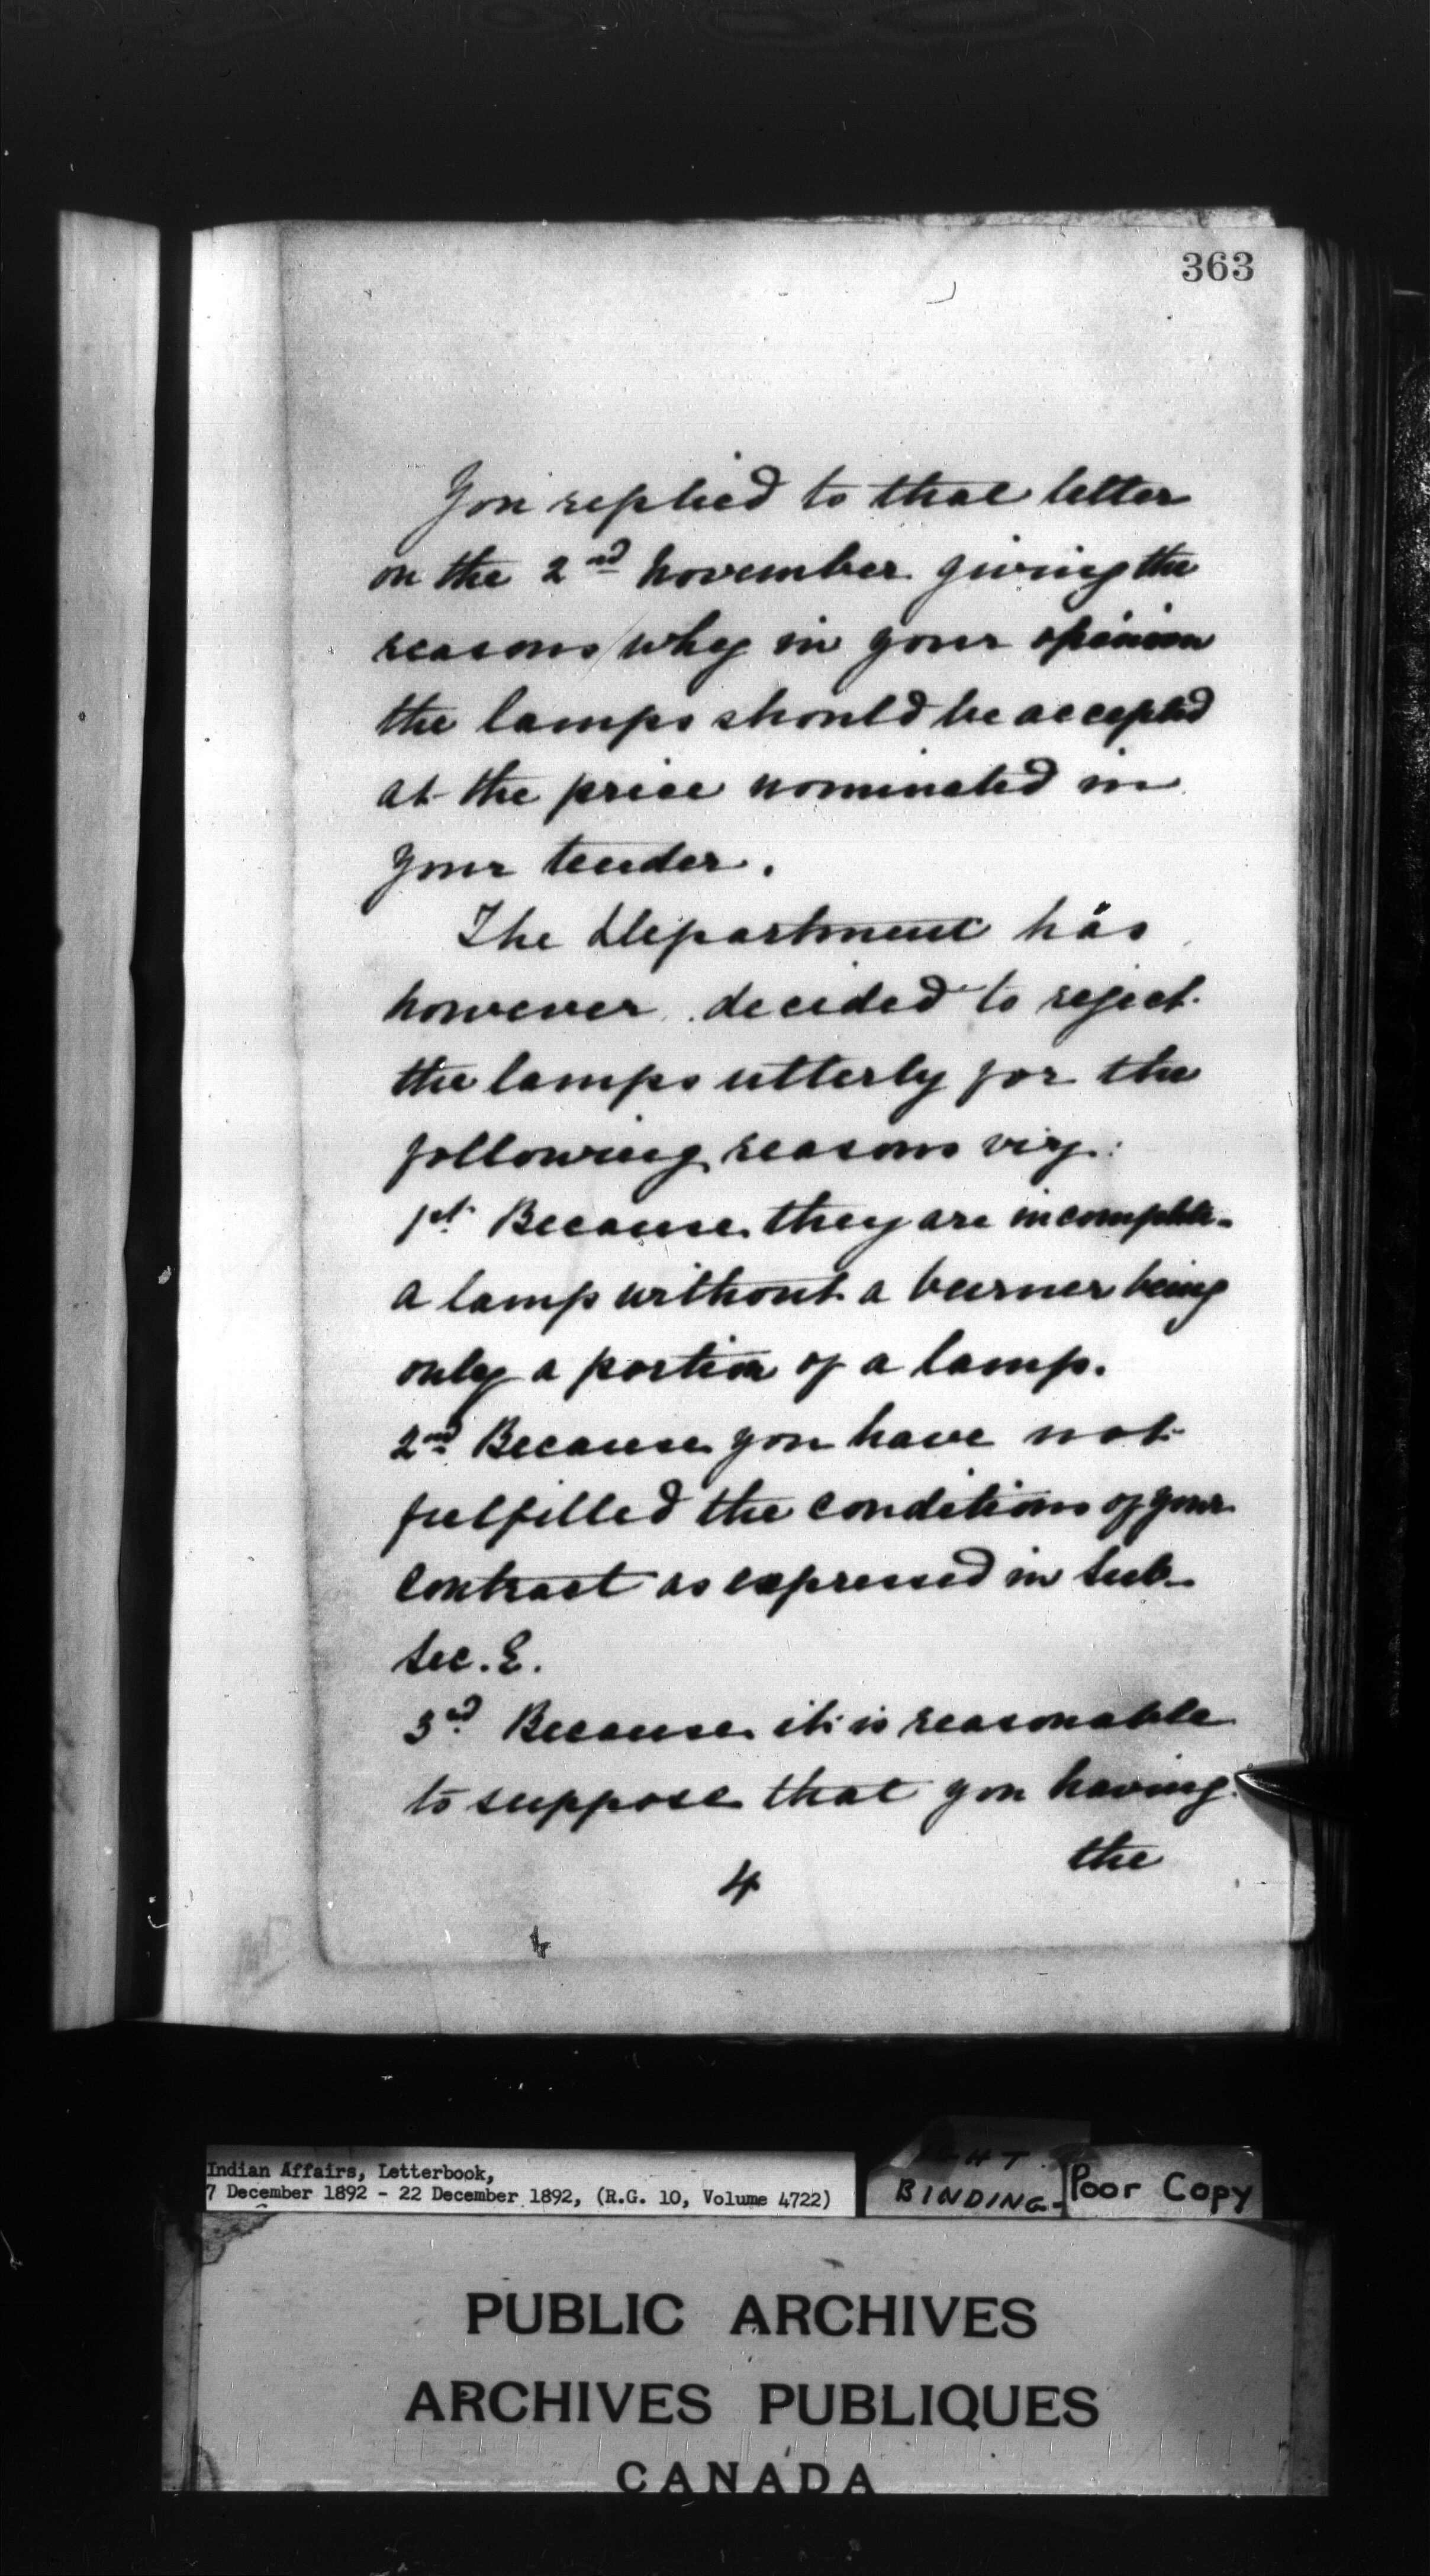 363
You replied to that letter
on the 2nd November giving the
reasons why in your opinion
the lamps should be accepted
at the price nominated in
your tender.
The Department has
however decided to reject
the lamps utterly for the
following reasons viz:
1st Because they are incomplete-
a lamp without a burner being
only a portion of a lamp.
2nd Because you have not
fulfilled the conditions of your
contract as expressed in Sub-
Sec. E.
3rd Because it is reasonable
to suppose that you having
the
4
Indian Affairs, Letterbook,
7 December 1892 - 22 December 1892, (R.G. 10, Volume 4722)
BINDING-
Poor Copy
PUBLIC ARCHIVES
ARCHIVES PUBLIQUES
CANADA